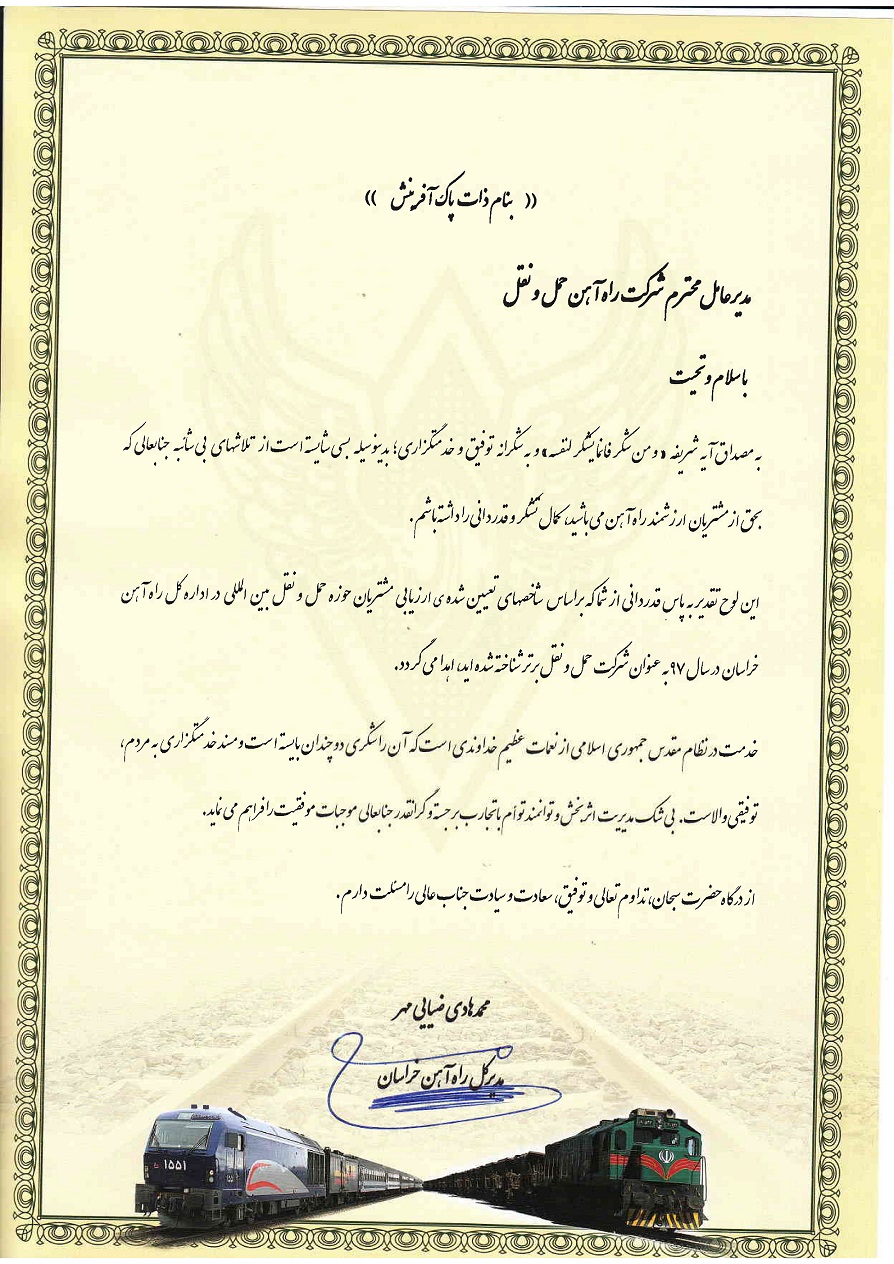 (( بنام ذات پاک آفرینش ))
مدیرعامل محترم شرکت راه آهن حمل و نقل
با سلام و تحیت
به مصداق آیه شریفه «و من شکر فانما یشکر لنفسه» و به شکرانه توفیق و خدمتگزاری؛ بدینوسیله بسی شایسته است از تلاشهای بی شائبه جنابعالی که
بحق از مشتریان ارزشمند راه آهن می باشید، کمال تشکر و قدردانی را داشته باشم.
این لوح تقدیر به پاس قدردانی از شما که براساس شاخصهای تعیین شده ی ارزیابی مشتریان حوزه حمل و نقل بین المللی در اداره کل راه آهن
خراسان در سال ۹۷ به عنوان شرکت حمل و نقل برتر شناخته شده اید، اهدا می گردد.
خدمت در نظام مقدس جمهوری اسلامی از نعمات عظیم خداوندی است که آن را شکری دو چندان بایسته است و مسند خدمتگزاری به مردم،
توفیقی والاست. بی شک مدیریت اثربخش و توانمند توأم با تجارب برجسته و گرانقدر جنابعالی موجبات موفقیت را فراهم می نماید.
از درگاه حضرت سبحان، تداوم تعالی و توفیق، سعادت و سیادت جناب عالی را مسئلت دارم.
محمدهادی ضیایی مهر
مدیرکل راه آهن خراسان
۱۵۵۱